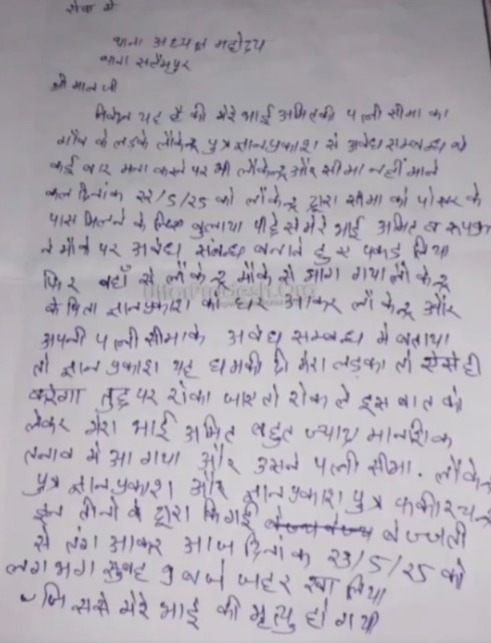 सेवा में
थाना अध्यक्ष महोदय
थाना सलेमपुर
श्री मान जी
निवेदन यह है की मेरे भाई अमितकी पत्नी सीमा का
गाँव के लडके लौकेन्द्र पुत्र ज्ञानप्रकाश से अवेध सम्बन्ध थे
कई बार मना करने पर भी लौकेन्द्र और सीमा नहीं माने
कल दिनांक 22/5/25 को लौकेन्द्र द्वारा सीमा को पोखर के
पास मिलने के लिए बुलाया पीछे से मेरे भाई अमित व
ने मौके पर अवेध संबन्ध बनाते हुए पकड लिया
फिर वहाँ से लौकेन्द्र मौके से भाग गया लौकेन्द्र
के पिता ज्ञानप्रकाश को घर आकर लौकेन्द्र और
अपनी पत्नी सीमाके अवेध सम्बन्ध मे बताया
तो ज्ञान प्रकाश यह धमकी दी मेरा लडका तो ऐसे ही
करेगा तुझ पर रोका जाए तो रोक ले इस बात को
लेकर मेरा भाई अमित बहुत ज्यादा मानशिक
तनाव मे आ गया और उसने पत्नी सीमा. लौकेन्द्र
पुत्र ज्ञानप्रकाश और ज्ञानप्रकाश पुत्र फकीरचन्द
इन तीनो के द्वारा किगई बेज्जती
से तंग आकर आज दिनांक 23/5/25 को
लगभग सुबह 9 बजे जहर खा लिया
जिससे मेरे भाई की मृत्यु हो गयी